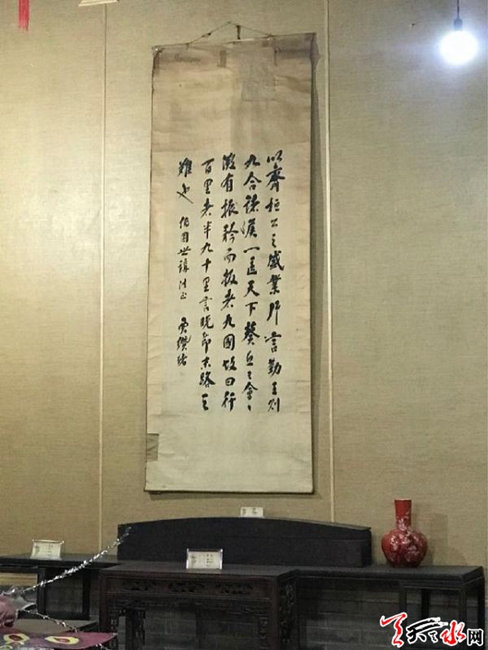 以齊桓公之盛業片言勤王則
九合諸侯一匡天下葵丘之會
微有振矜而叛者九國故曰行
百里者半九十里言晚節末路之
難也 世 法正 賈纘緒
天天水网